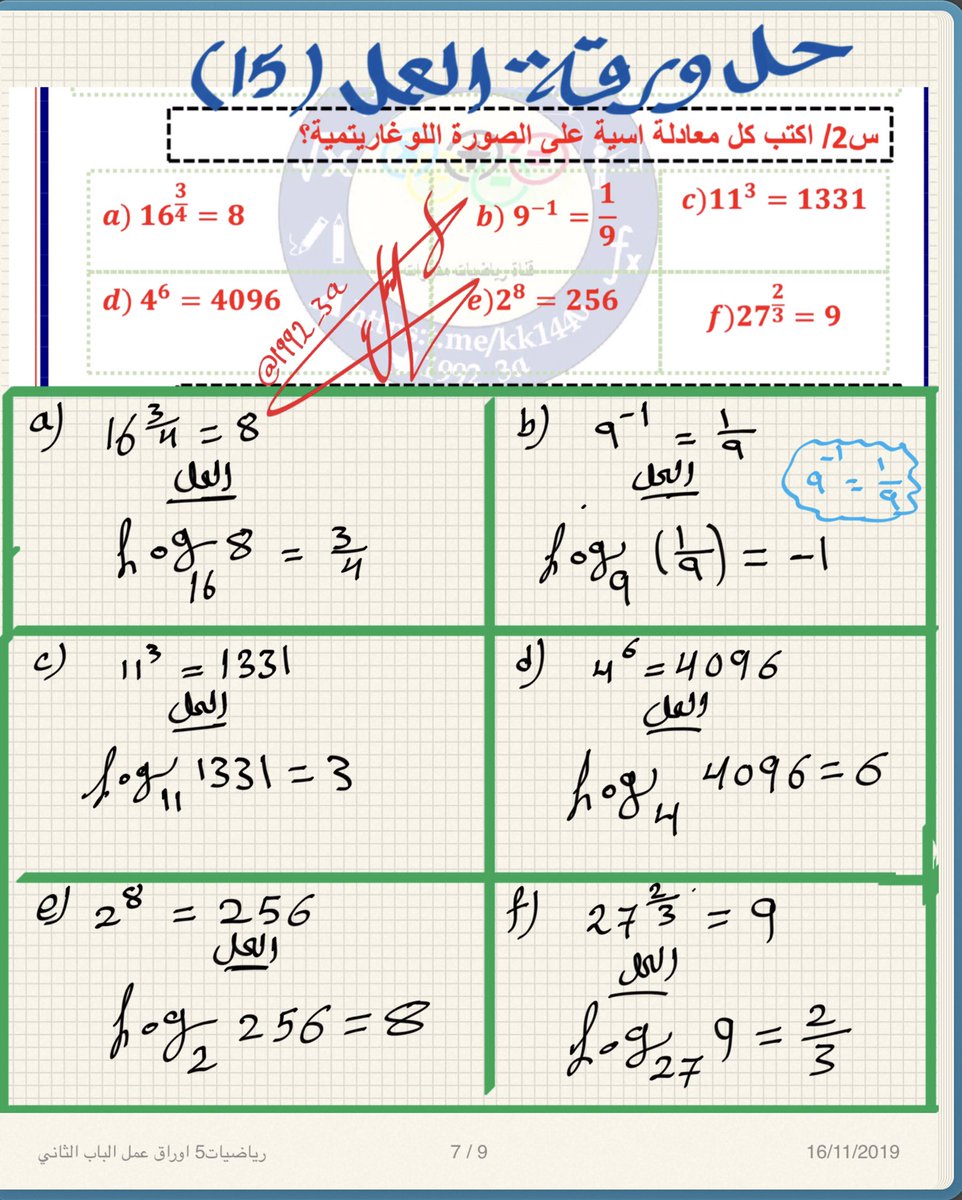 حل ورقة العمل (15)
س2/ اكتب كل معادلة اسية على الصورة اللوغاريتمية؟
a) 16^{3/4} = 8
b) 9^{-1} = 1/9
c)11^3 = 1331
d) 4^6 = 4096
e)2^8 = 256
f)27^{2/3} = 9
@1992_3a
قناة رياضيات
.me/kk1440
1992_3a
a) 16^{3/4} = 8
الحل
log_{16} 8 = 3/4
b) 9^{-1} = 1/9
9^{-1} = 1/9
الحل
log_9 (1/9) = -1
c) 11^3 = 1331
الحل
log_{11} 1331 = 3
d) 4^6 = 4096
الحل
log_4 4096 = 6
e) 2^8 = 256
الحل
log_2 256 = 8
f) 27^{2/3} = 9
الحل
log_{27} 9 = 2/3
رياضيات5 اوراق عمل الباب الثاني
7 / 9
16/11/2019